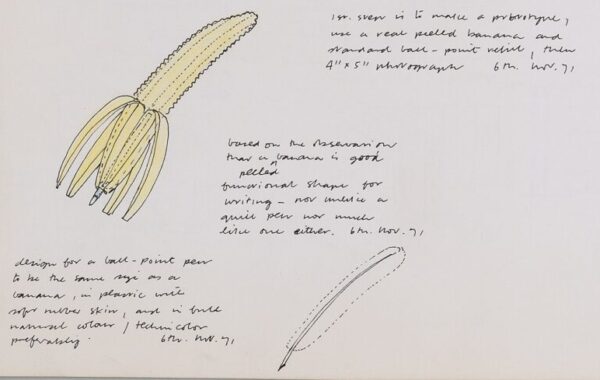 1st. step is to make a prototype,
use a real peeled banana and
standard ball-point refill, then
4" x 5" photograph 6th. Nov. 71
based on the observation
that a banana is good
peeled
functional shape for
writing - not unlike a
quill pen nor much
like one either. 6th. Nov. 71
design for a ball-point pen
to be the same size as a
banana, in plastic with
soft rubber skin, and in full
natural colour / technicolor
preferably. 6th. Nov. 71